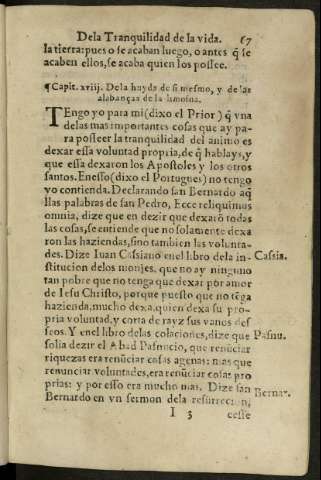 Dela Tranquilidad de la vida. 67
la tierra: pues o se acaban luego, o antes q̃ se
acaben ellos, se acaba quien los possee.
¶Capit. xviij. Dela huyda de si mesmo, y de las
alabanças de la limosna.
TEngo yo para mi (dixo el Prior) q̃ vna
delas mas importantes cosas que ay pa-
ra posseer la tranquilidad del animo es
dexar essa voluntad propria, de q̃ hablays, y
que essa dexaron los Apostoles y los otros
santos. En esso (dixo el Portugues) no tengo
yo contienda. Declarando san Bernardo aq̃
llas palabras de san Pedro, Ecce reliquimus
omnia, dize que en dezir que dexarõ todas
las cosas, se entiende que no solamente dexa
ron las haziendas, sino tambien las volunta-
des. Dize Iuan Cassiano enel libro dela in- Cassia.
stitucion delos monjes, que no ay ninguno
tan pobre que no tenga que dexar por amor
de Iesu Christo, porque puesto que no tẽga
hazienda, mucho dexa, quien dexa su pro-
pria voluntad, y corta de rayz sus vanos des
seos. Y enel libro delas colaciones, dize que Pasnu.
solia dezir el Abad Pasnucio, que renũciar
riquezas era renũciar cosas agenas: mas que
renunciar voluntades, era renũciar cosas pro
prias: y por esso era mucho mas. Dize san
Bernardo en vn sermon dela resurrecion, Bernar.
I 3 cesse